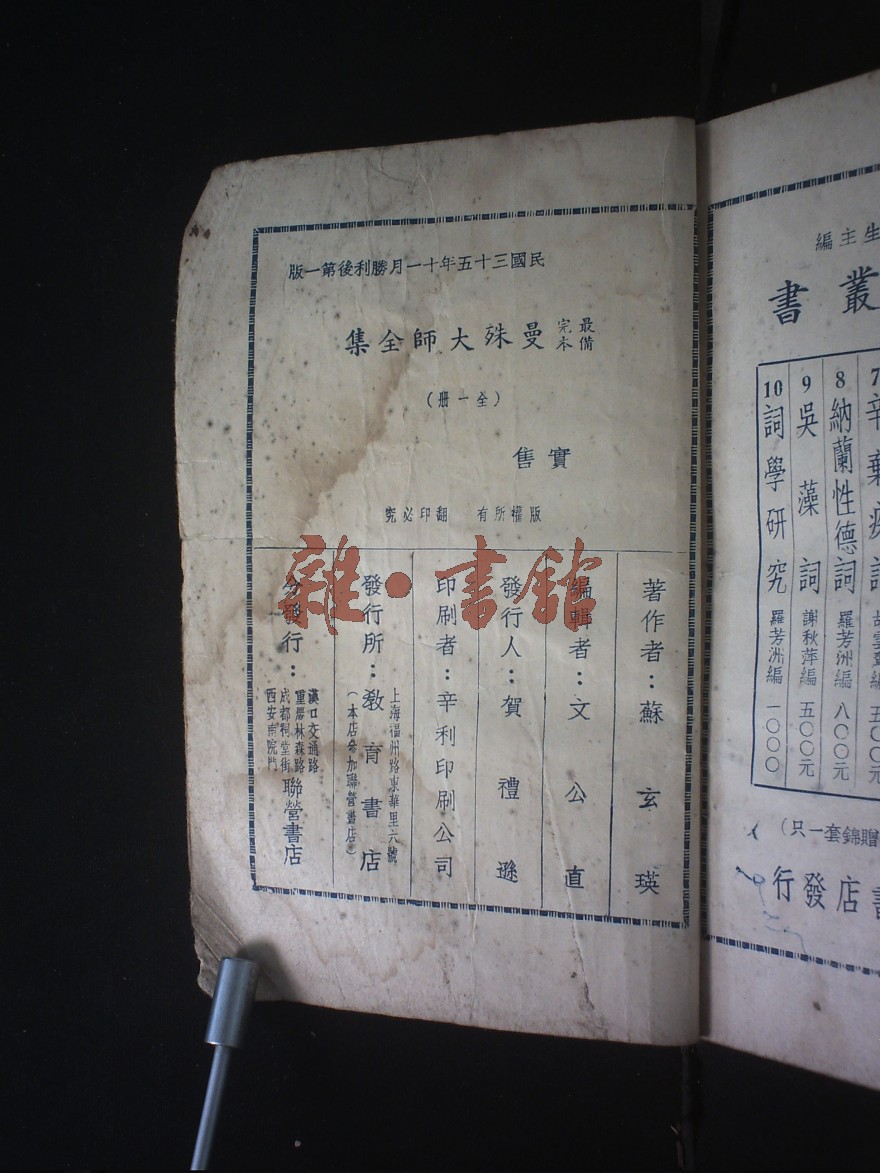 民國三十五年十一月勝利後第一版
最備完本
曼殊大師全集
(全一册)
實售
版權所有 翻印必究
著作者：蘇玄瑛
編輯者：文公直
發行人：賀禮遜
印刷者：辛利印刷公司
發行所：教育書店
上海福州路東華里六號
(本店參加聯營書店)
分發行：
漢口交通路
重慶林森路
成都祠堂街
西安南院門
聯營書店
雜·書館
生主編
叢書
7 辛棄疾詞 胡雲翼編 五〇〇元
8 納蘭性德詞 羅芳洲編 八〇〇元
9 吳藻詞 謝秋萍編 五〇〇元
10 詞學研究 羅芳洲編 一〇〇〇
贈錦套一只)
書店發行